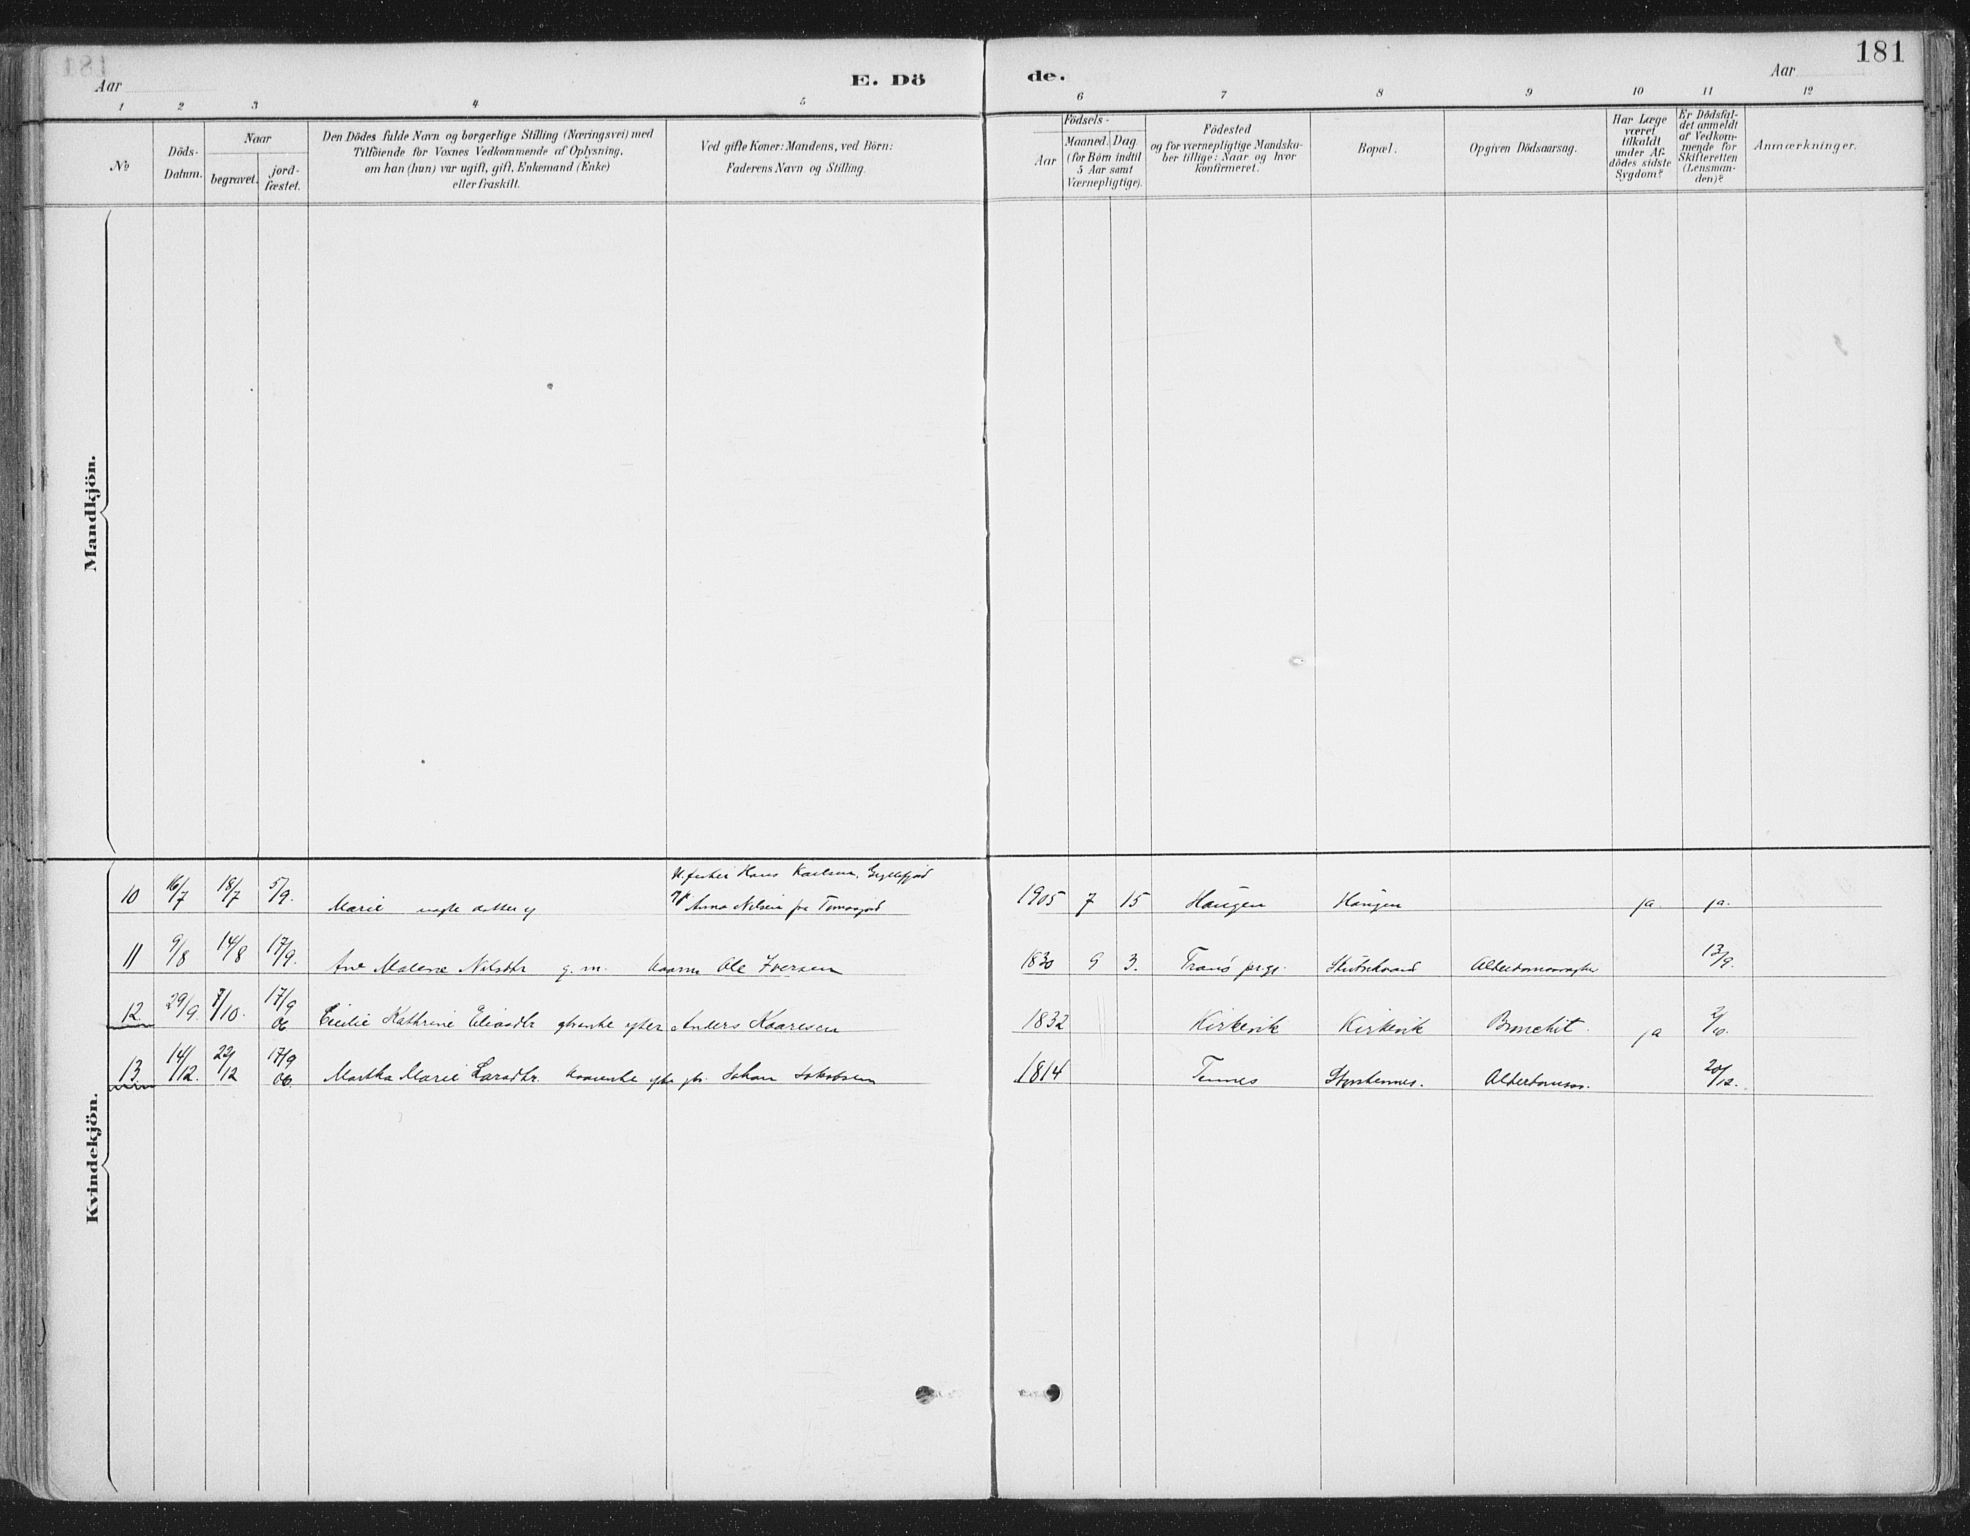 181
Aar
E. Dö
de.
Aar
1 2 3 4 5 6 7 8 9 10 11 12
No
Döds-
Datum.
Naar
begravet.
jord-
fæstet.
Den Dödes fulde Navn og borgerlige Stilling (Næringsvei) med
Tilföiende for Voxnes Vedkommende af Oplysning,
om han (hun) var ugift, gift, Enkemand (Enke)
eller fraskilt.
Ved gifte Koner: Mandens, ved Börn:
Faderens Navn og Stilling.
Födsels-
Aar
Maaned.
Dag
(for Börn indtil
5 Aar samt
Værnepligtige).
Födested
og for værnepligtige Mandska-
ber tillige: Naar og hvor
konfirmeret.
Bopæl.
Opgiven Dödsaarsag.
Har Læge
været
tilkaldt
under Af-
dödes sidste
Sygdom?
Er Dödsfal-
det anmeldt
af Vedkom-
mende for
Skifteretten
(Lensman-
den)?
Anmærkninger.
Mandkjön.
Kvindekjön.
Hans Karlsen,
10 16/7 18/7 5/9. Marie Anna Nilsen fra 1905 7 15 Haugen Haugen ja ja.
11 9/8 14/8 17/9. Ane Malene Nilsdtr g. m. Ole Iversen 1830 9 3. Tranö 13/9.
12 29/9. 7/10. 17/9 06 Cecilie Kathrine Eliasdtr efter Anders Kaaresen 1832 Kirkevik Kirkevik Bronchit. ja
13. 14/12. 22/12 17/9 06. Martha Marie Larsdtr. Johan Jakobsen 1814 Tennes 20/12.